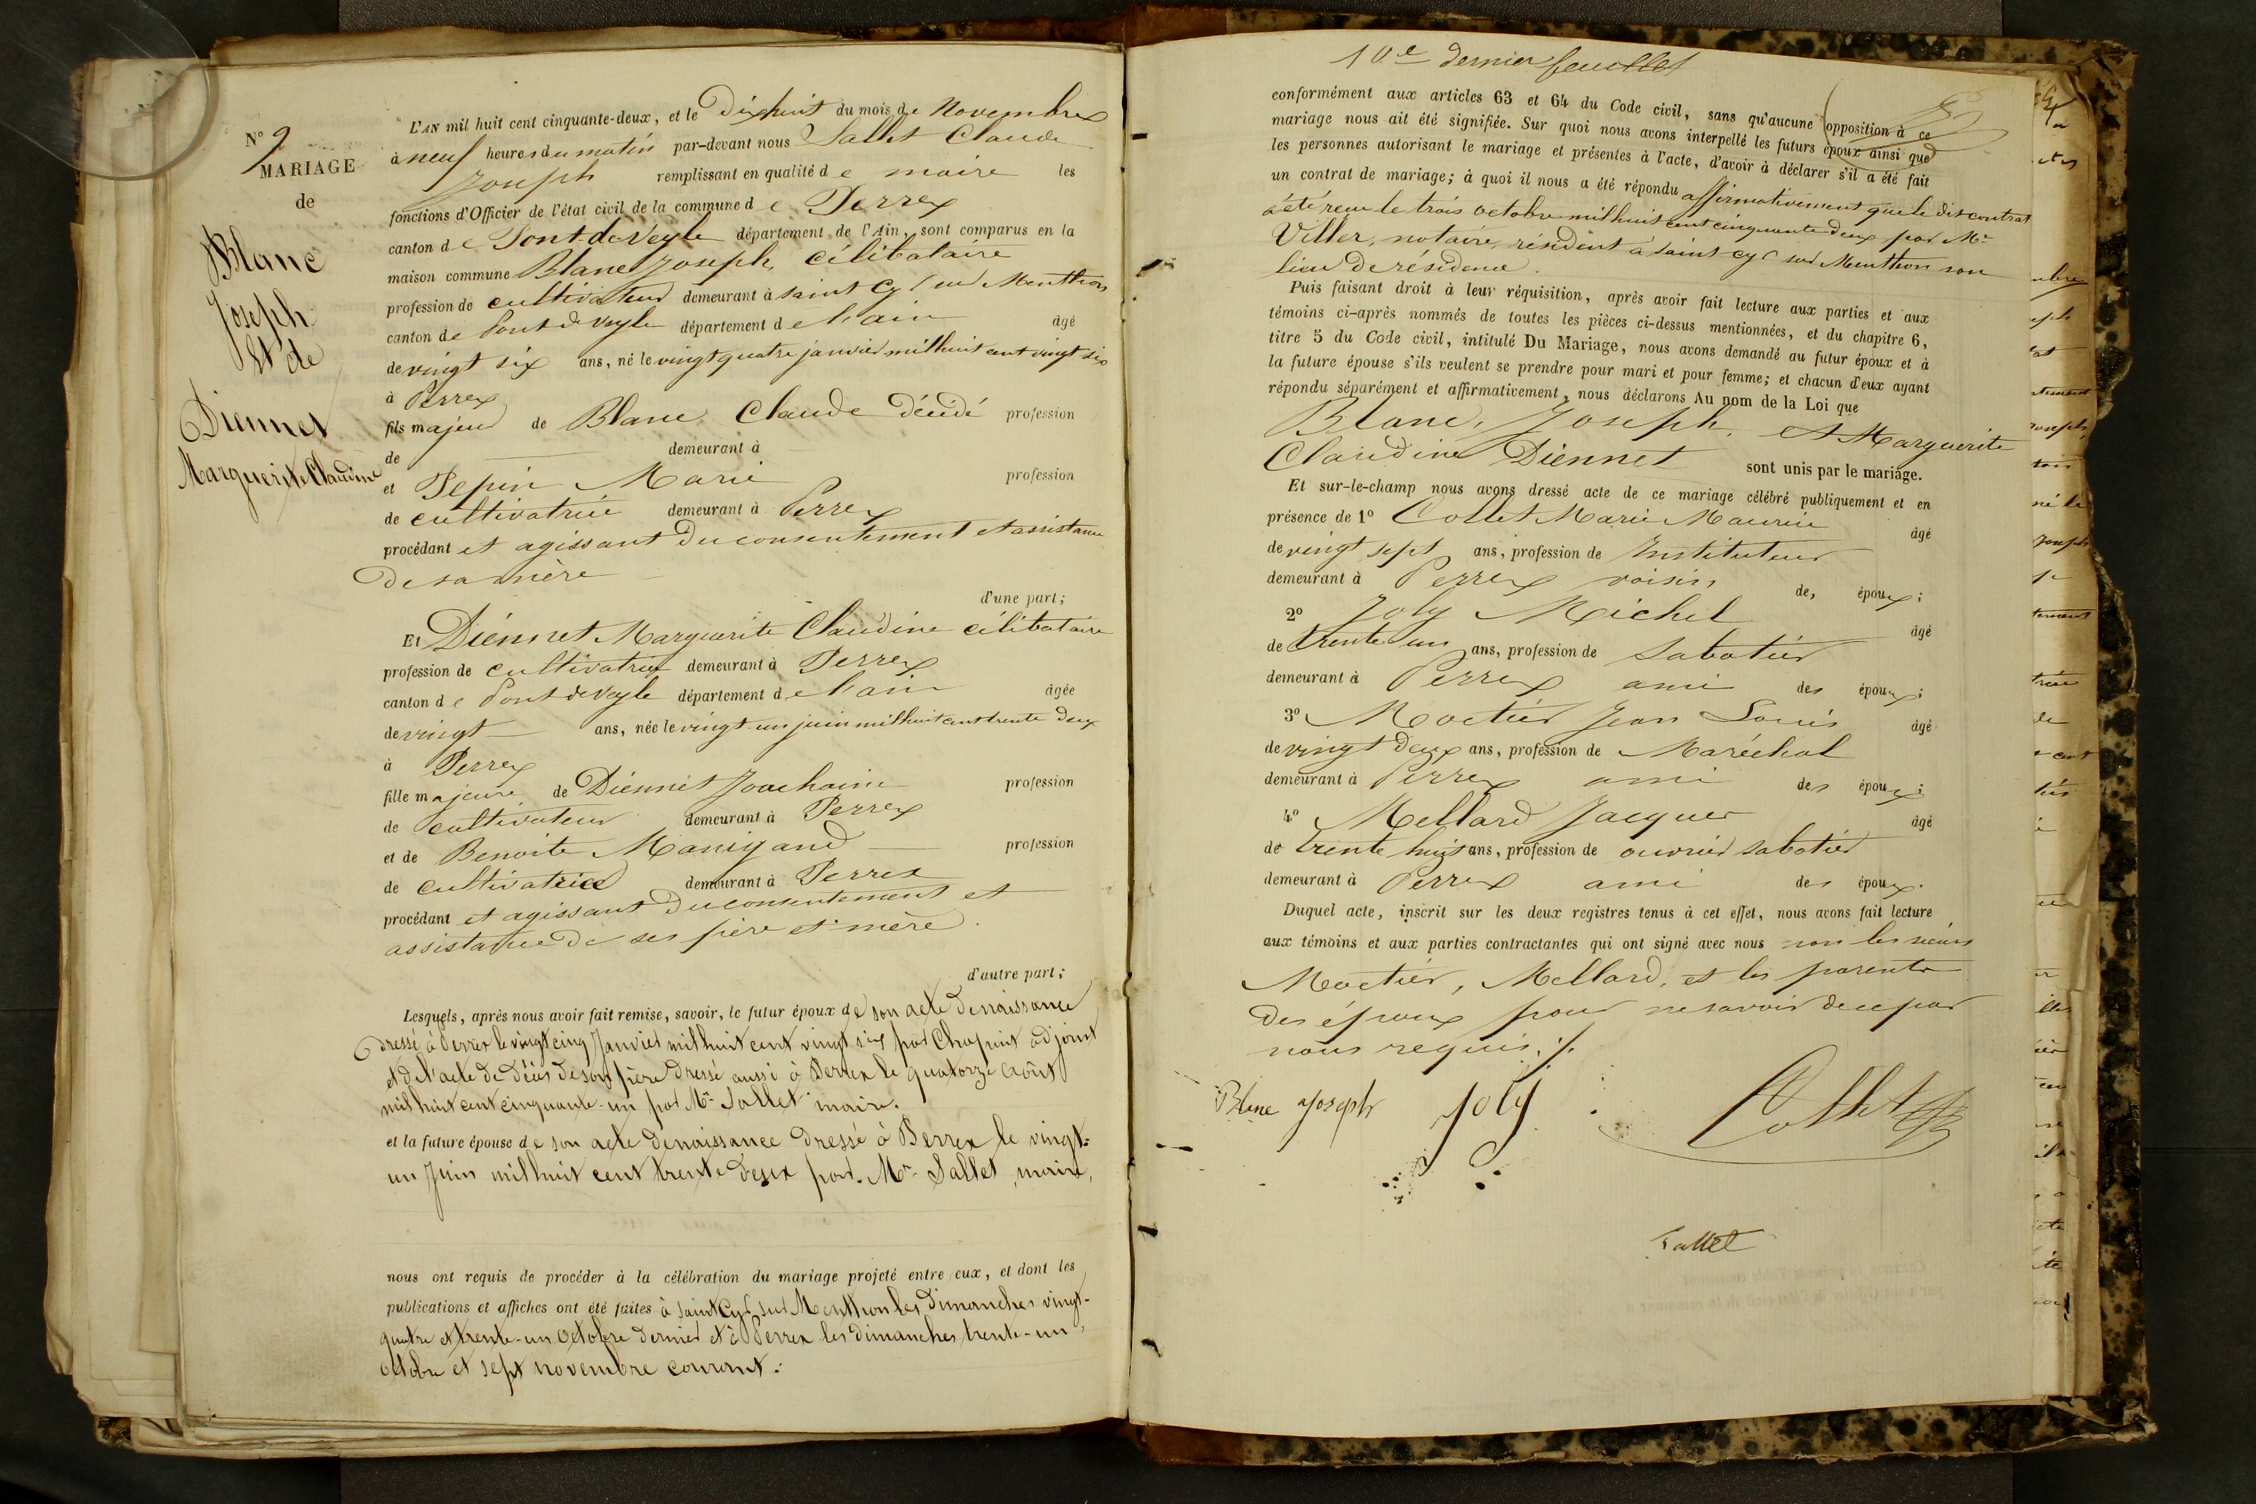 N° 9
MARIAGE
de
Blanc
Joseph
Et de
Diennet
Marguerite Claudine
L'AN mil huit cent cinquante-deux, et le Dixhuit du mois de Novembre
à neuf heures du matin par-devant nous Sallet Claude
Joseph remplissant en qualité de maire les
fonctions d'Officier de l'état civil de la commune de Perrex
canton de Pont-de-Veyle département de l'Ain, sont comparus en la
maison commune Blanc Joseph, célibataire
profession de cultivateur demeurant à saint Cyr sur Menthon
canton de Pont de Veyle département de l'ain âgé
de vingt six ans, né le vingt quatre janvier mil huit cent vingt six
à Perrex
fils majeur de Blanc Claude décédé profession
de demeurant à
et Pepin Marie profession
de cultivatrice demeurant à Perrex
procédant et agissant du consentement et assistance
de sa mère
d'une part;
Et Diennet Marguerite Claudine célibataire
profession de cultivatrice demeurant à Perrex
canton de Pont de Veyle département de l'ain âgée
de vingt ans, née le vingt-un juin mil huit cent trente deux
à Perrex
fille majeure de Diennet Joachaim profession
de cultivateur demeurant à Perrex
et de Benoite Manigand profession
de cultivatrice demeurant à Perrex
procédant et agissant du consentement et
assistance de ses père et mère.
d'autre part;
Lesquels, après nous avoir fait remise, savoir, le futur époux de son acte de naissance
dressé à Perrex le vingt cinq Janvier mil huit cent vingt six par Chapuit adjoint
et de l'acte de décès de son père dressé aussi à Perrex le quatorze août
mil huit cent cinquante-un par Mr Sallet maire.
et la future épouse de son acte de naissance dressé à Perrex le vingt-
un Juin mil huit cent trente deux par Mr Sallet, maire,
nous ont requis de procéder à la célébration du mariage projeté entre eux, et dont les
publications et affiches ont été faites à Saint Cyr sur Menthon les dimanches vingt-
quatre et trente-un octobre dernier et à Perrex les dimanches trente-un
octobre et sept novembre courant.
10e dernier feuillet
conformément aux articles 63 et 64 du Code civil, sans qu'aucune opposition à ce
mariage nous ait été signifiée. Sur quoi nous avons interpellé les futurs époux ainsi que
les personnes autorisant le mariage et présentes à l'acte, d'avoir à déclarer s'il a été fait
un contrat de mariage; à quoi il nous a été répondu affirmativement que le dit contrat
a été reçu le trois octobre mil huit cent cinquante deux par Mr
Viller, notaire, résident à saint Cyr sur Menthon son
lieu de résidence.
Puis faisant droit à leur réquisition, après avoir fait lecture aux parties et aux
témoins ci-après nommés de toutes les pièces ci-dessus mentionnées, et du chapitre 6,
titre 5 du Code civil, intitulé Du Mariage, nous avons demandé au futur époux et à
la future épouse s'ils veulent se prendre pour mari et pour femme; et chacun d'eux ayant
répondu séparément et affirmativement, nous déclarons Au nom de la Loi que
Blanc, Joseph, et Marguerite
Claudine Diennet sont unis par le mariage.
Et sur-le-champ nous avons dressé acte de ce mariage célébré publiquement et en
présence de 1° Collet Marie Maurice âgé
de vingt sept ans, profession de Instituteur
demeurant à Perrex voisin des époux;
2° Joly Michel âgé
de trente un ans, profession de Sabotier
demeurant à Perrex ami des époux;
3° Moctier Jean Louis âgé
de vingt deux ans, profession de Maréchal
demeurant à Perrex ami des époux;
4° Mellard Jacques âgé
de trente huit ans, profession de ouvrier sabotier
demeurant à Perrex ami des époux.
Duquel acte, inscrit sur les deux registres tenus à cet effet, nous avons fait lecture
aux témoins et aux parties contractantes qui ont signé avec nous non les sieurs
Moctier, Mellard, et les parents
des époux pour ne savoir de ce par
nous requis ./.
Blanc Joseph Joly Collet
Sallet